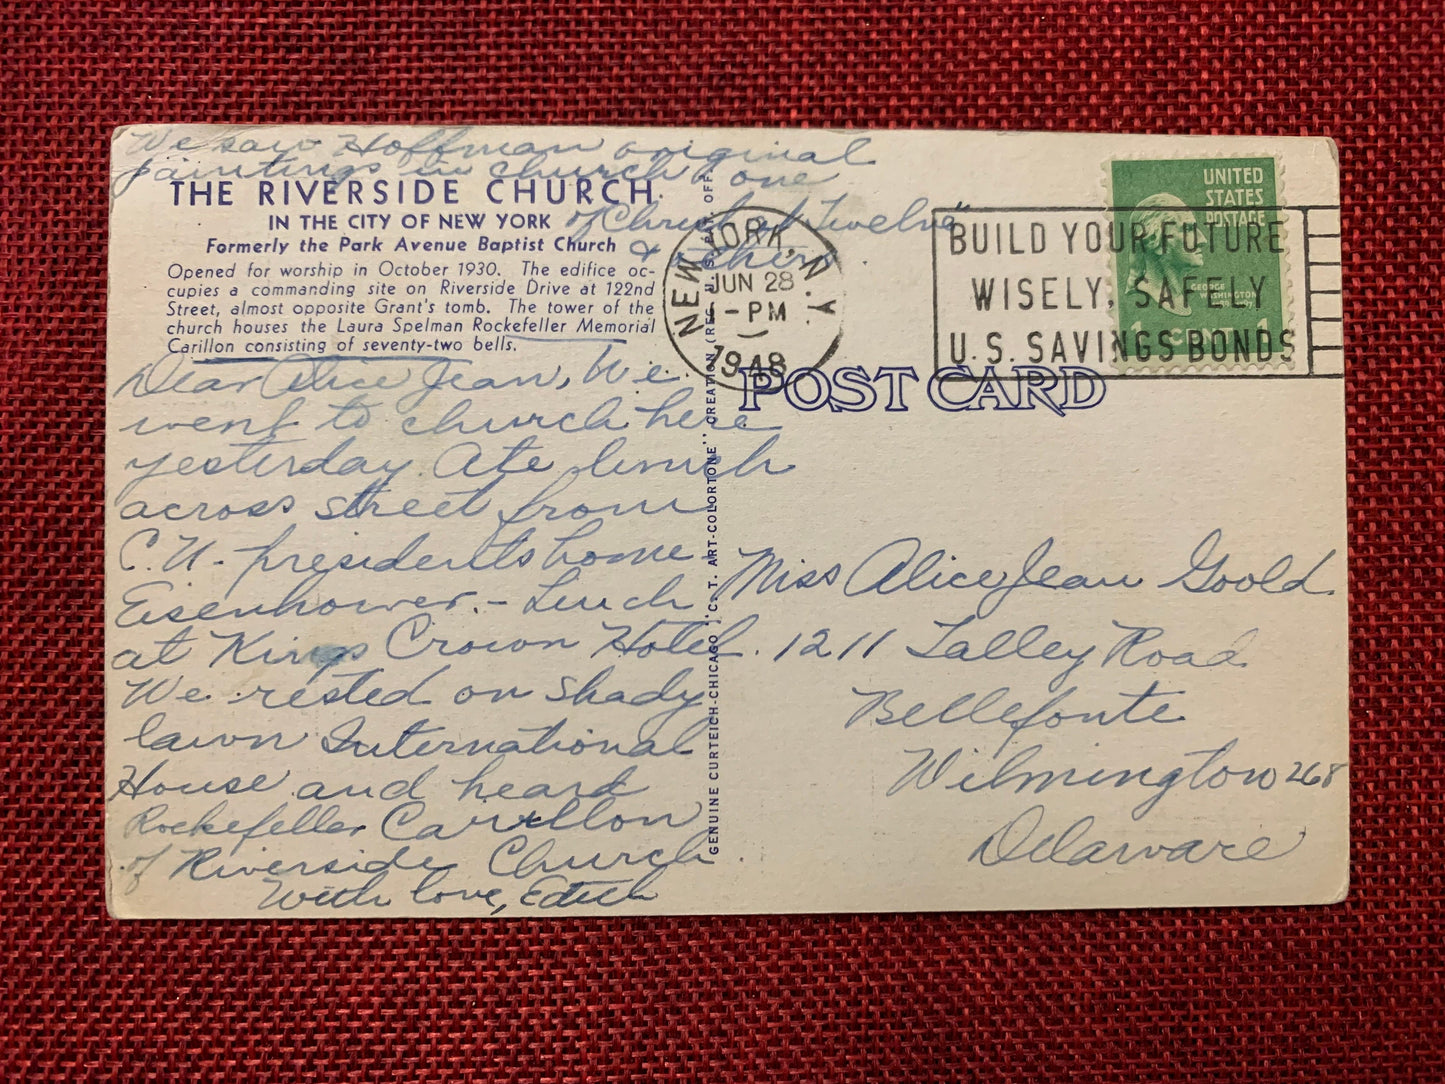 We saw Hoffman original
paintings in church one
of "Christ at Twelve"
& others
THE RIVERSIDE CHURCH
IN THE CITY OF NEW YORK
Formerly the Park Avenue Baptist Church
Opened for worship in October 1930. The edifice oc-
cupies a commanding site on Riverside Drive at 122nd
Street, almost opposite Grant's tomb. The tower of the
church houses the Laura Spelman Rockefeller Memorial
Carillon consisting of seventy-two bells.
Dear Alice Jean, We
went to church here
yesterday. Ate lunch
across street from
C. U. presidents home
Eisenhower. - Lunch
at Kings Crown Hotel.
We rested on shady
lawn International
House and heard
Rockefeller Carillon
of Riverside Church.
With love, Edith
GENUINE CURTEICH-CHICAGO "C. T. ART-COLORTONE" CREATION (REG. U.S. PAT. OFF.)
NEW YORK, N.Y.
JUN 28
1 - PM
1948
BUILD YOUR FUTURE
WISELY, SAFELY
U.S. SAVINGS BONDS
UNITED
STATES
POSTAGE
GEORGE
WASHINGTON
1 CENT 1
POST CARD
Miss Alice Jean Goold
1211 Talley Road
Bellefonte
Wilmington 268
Delaware